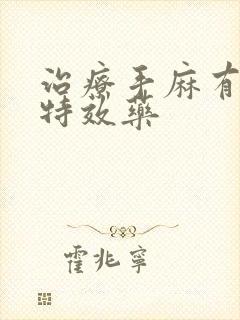 治療手麻有
特效藥
霍兆寧